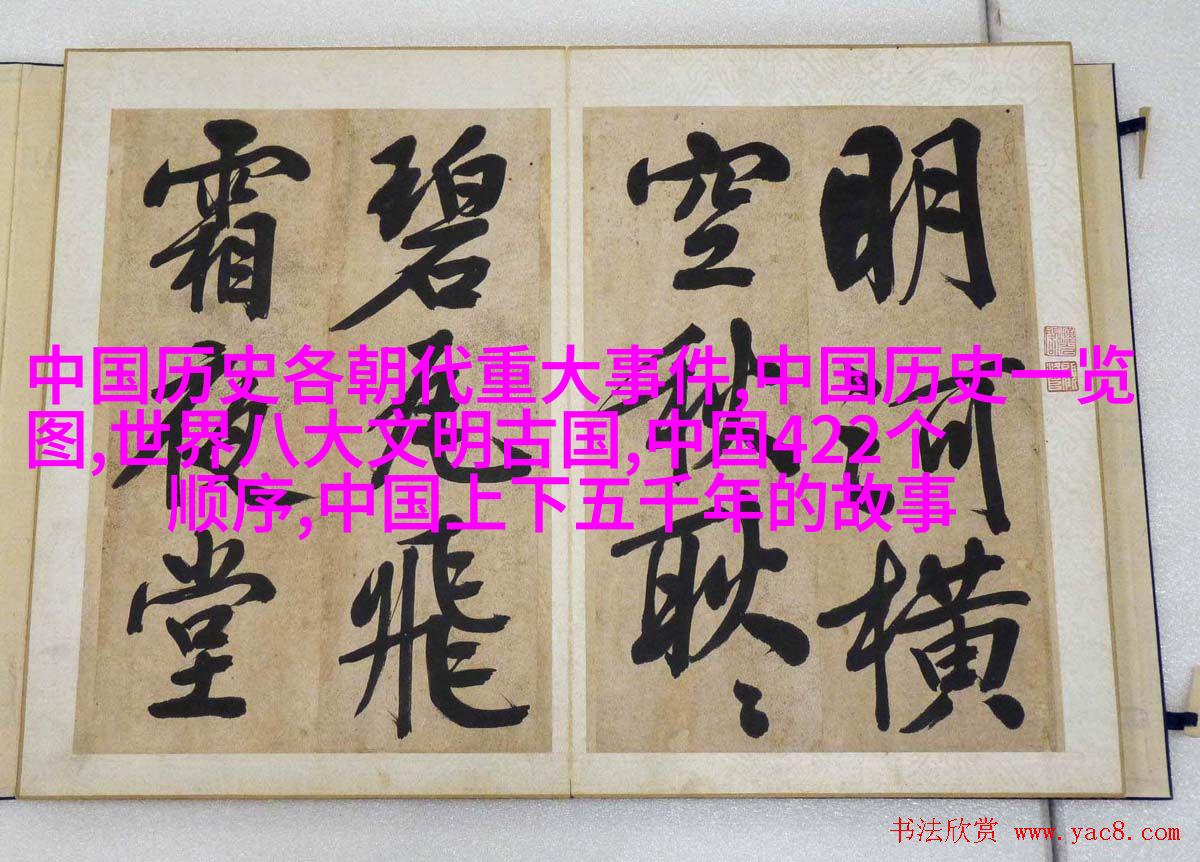 明河橫
空秋耿〻
碧瓦飛
霜夜堂
中国历史各朝代重大事件,中国历史一览
图,世界八大文明古国,中国422个
顺序,中国上下五千年的故事
书法欣赏 www.yac8.com